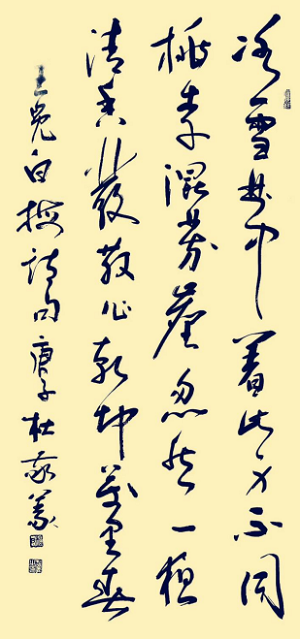 冰雪林中著此身不同
桃李混芳塵忽然一夜
清香發散作乾坤萬里春
王冕白梅詩句庚子杜